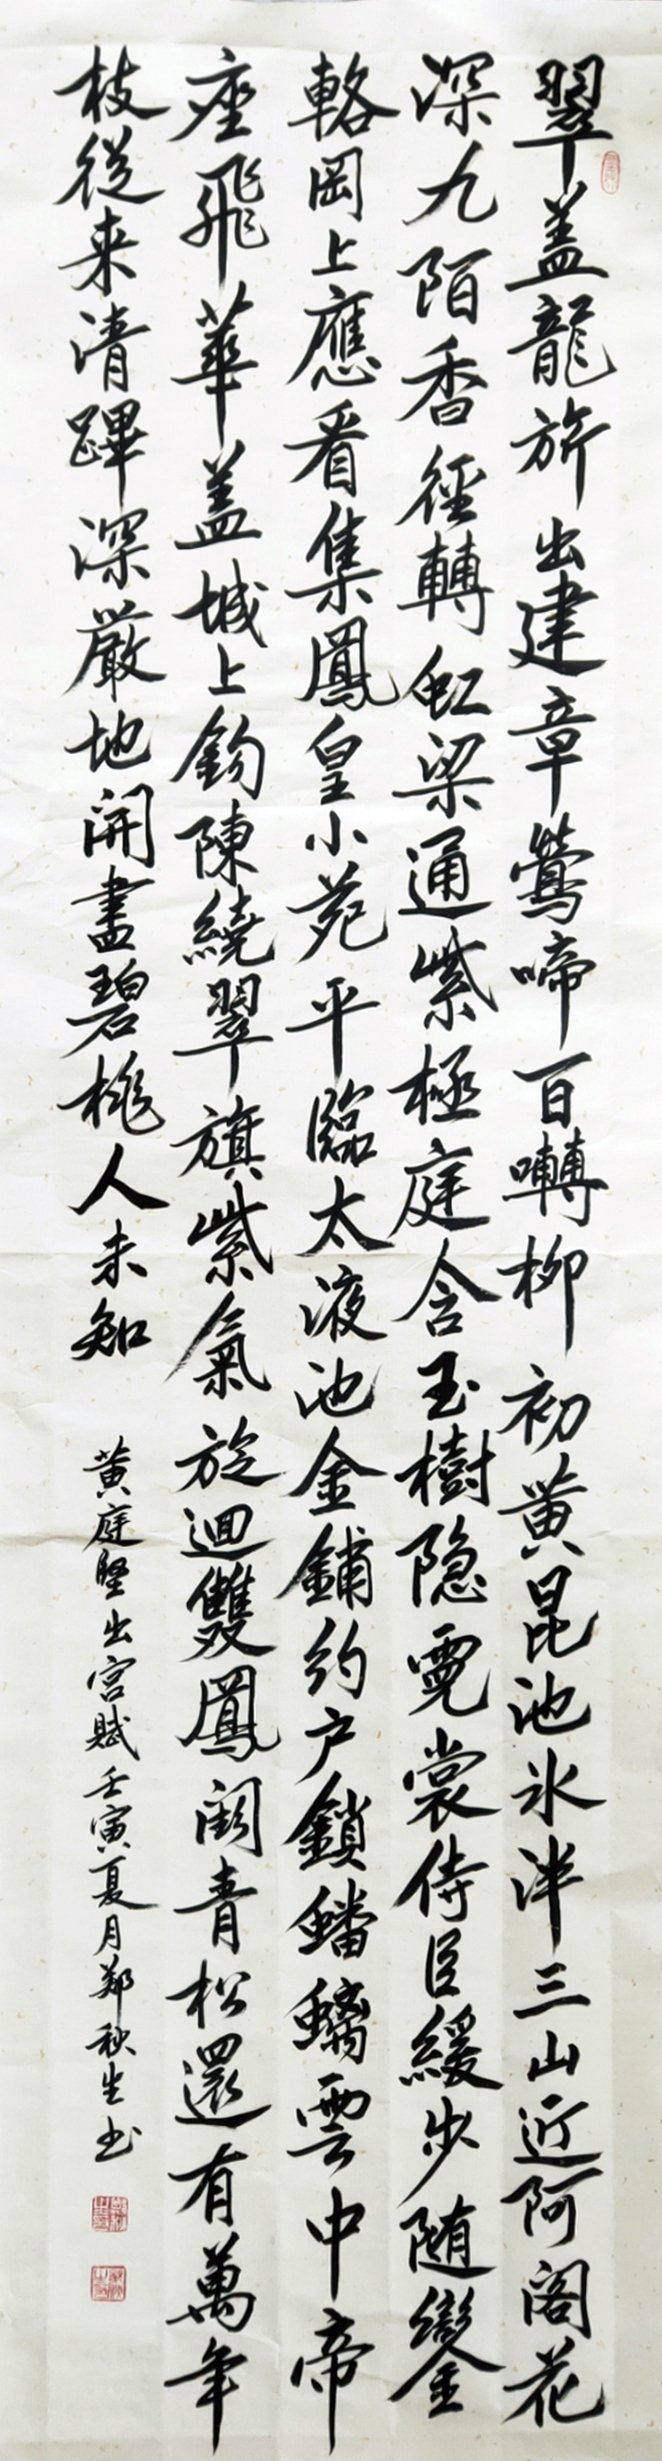 翠盖龍旂出建章鶯啼百囀柳初黄昆池氷泮三山近阿阁花
深九陌香徑轉虹梁通紫極庭含玉樹隐霓裳侍臣緩步随鑾
輅岡上應看集鳳皇小苑平臨太液池金鋪約户鎖蟠螭雲中帝
座飛華盖城上鈎陳繞翠旗紫氣旋迴雙鳳闕青松還有萬年
枝從来清蹕深嚴地開盡碧桃人未知 黄庭坚出宫賦壬寅夏月郑秋生书